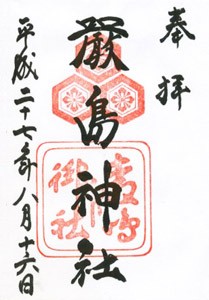 奉拝
厳島神社
嚴島
御社
平成二十七年八月十六日